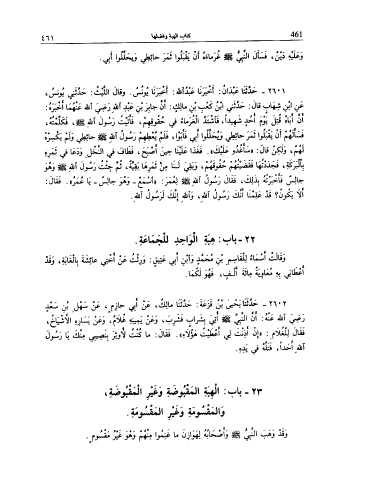 ٤٦١ كتاب الهبة وفضلها 461
وَعَلَيْهِ دَيْنٌ، فَسَأَلَ النَّبِيُّ ﷺ غُرَمَاءَهُ أَنْ يَقْبَلُوا ثَمَرَ حَائِطِي وَيُحَلِّلُوا أَبِي.
٢٦٠١ - حَدَّثَنَا عَبْدَانُ: أَخْبَرَنَا عَبْدُاللهِ: أَخْبَرَنَا يُونُسُ. وَقَالَ اللَّيْثُ: حَدَّثَنِي يُونُسُ،
عَنِ ابْنِ شِهَابٍ قَالَ: حَدَّثَنِي ابْنُ كَعْبِ بْنِ مَالِكٍ: أَنَّ جَابِرَ بْنَ عَبْدِ اللهِ رَضِيَ اللهُ عَنْهُمَا أَخْبَرَهُ:
أَنَّ أَبَاهُ قُتِلَ يَوْمَ أُحُدٍ شَهِيداً، فَاشْتَدَّ الْغُرَمَاءُ فِي حُقُوقِهِمْ، فَأَتَيْتُ رَسُولَ اللهِ ﷺ فَكَلَّمْتُهُ،
فَسَأَلَهُمْ أَنْ يَقْبَلُوا ثَمَرَ حَائِطِي وَيُحَلِّلُوا أَبِي فَأَبَوْا، فَلَمْ يُعْطِهِمْ رَسُولُ اللهِ ﷺ حَائِطِي وَلَمْ يَكْسِرْهُ
لَهُمْ، وَلَكِنْ قَالَ: «سَأَغْدُو عَلَيْكَ». فَغَدَا عَلَيْنَا حِينَ أَصْبَحَ، فَطَافَ فِي النَّخْلِ وَدَعَا فِي ثَمَرِهِ
بِالْبَرَكَةِ، فَجَدَدْتُهَا فَقَضَيْتُهُمْ حُقُوقَهُمْ، وَبَقِيَ لَنَا مِنْ ثَمَرِهَا بَقِيَّةٌ، ثُمَّ جِئْتُ رَسُولَ اللهِ ﷺ وَهُوَ
جَالِسٌ فَأَخْبَرْتُهُ بِذَلِكَ، فَقَالَ رَسُولُ اللهِ ﷺ لِعُمَرَ: «اسْمَعْ - وَهُوَ جَالِسٌ - يَا عُمَرُ». فَقَالَ:
أَلَا يَكُونُ؟ قَدْ عَلِمْنَا أَنَّكَ رَسُولُ اللهِ، وَاللهِ إِنَّكَ لَرَسُولُ اللهِ.
٢٢ - باب: هِبَةِ الْوَاحِدِ لِلْجَمَاعَةِ.
وَقَالَتْ أَسْمَاءُ لِلْقَاسِمِ بْنِ مُحَمَّدٍ وَابْنِ أَبِي عَتِيقٍ: وَرِثْتُ عَنْ أُخْتِي عَائِشَةَ بِالْغَابَةِ، وَقَدْ
أَعْطَانِي بِهِ مُعَاوِيَةُ مِائَةَ أَلْفٍ، فَهُوَ لَكُمَا.
٢٦٠٢ - حَدَّثَنَا يَحْيَى بْنُ قَزَعَةَ: حَدَّثَنَا مَالِكٌ، عَنْ أَبِي حَازِمٍ، عَنْ سَهْلِ بْنِ سَعْدٍ
رَضِيَ اللهُ عَنْهُ: أَنَّ النَّبِيَّ ﷺ أُتِيَ بِشَرَابٍ فَشَرِبَ، وَعَنْ يَمِينِهِ غُلَامٌ، وَعَنْ يَسَارِهِ الْأَشْيَاخُ،
فَقَالَ لِلْغُلَامِ: «إِنْ أَذِنْتَ لِي أَعْطَيْتُ هَؤُلَاءِ». فَقَالَ: مَا كُنْتُ لِأُوثِرَ بِنَصِيبِي مِنْكَ يَا رَسُولَ
اللهِ أَحَداً، فَتَلَّهُ فِي يَدِهِ.
٢٣ - باب: الْهِبَةِ الْمَقْبُوضَةِ وَغَيْرِ الْمَقْبُوضَةِ،
وَالْمَقْسُومَةِ وَغَيْرِ الْمَقْسُومَةِ.
وَقَدْ وَهَبَ النَّبِيُّ ﷺ وَأَصْحَابُهُ لِهَوَازِنَ مَا غَنِمُوا مِنْهُمْ وَهُوَ غَيْرُ مَقْسُومٍ.